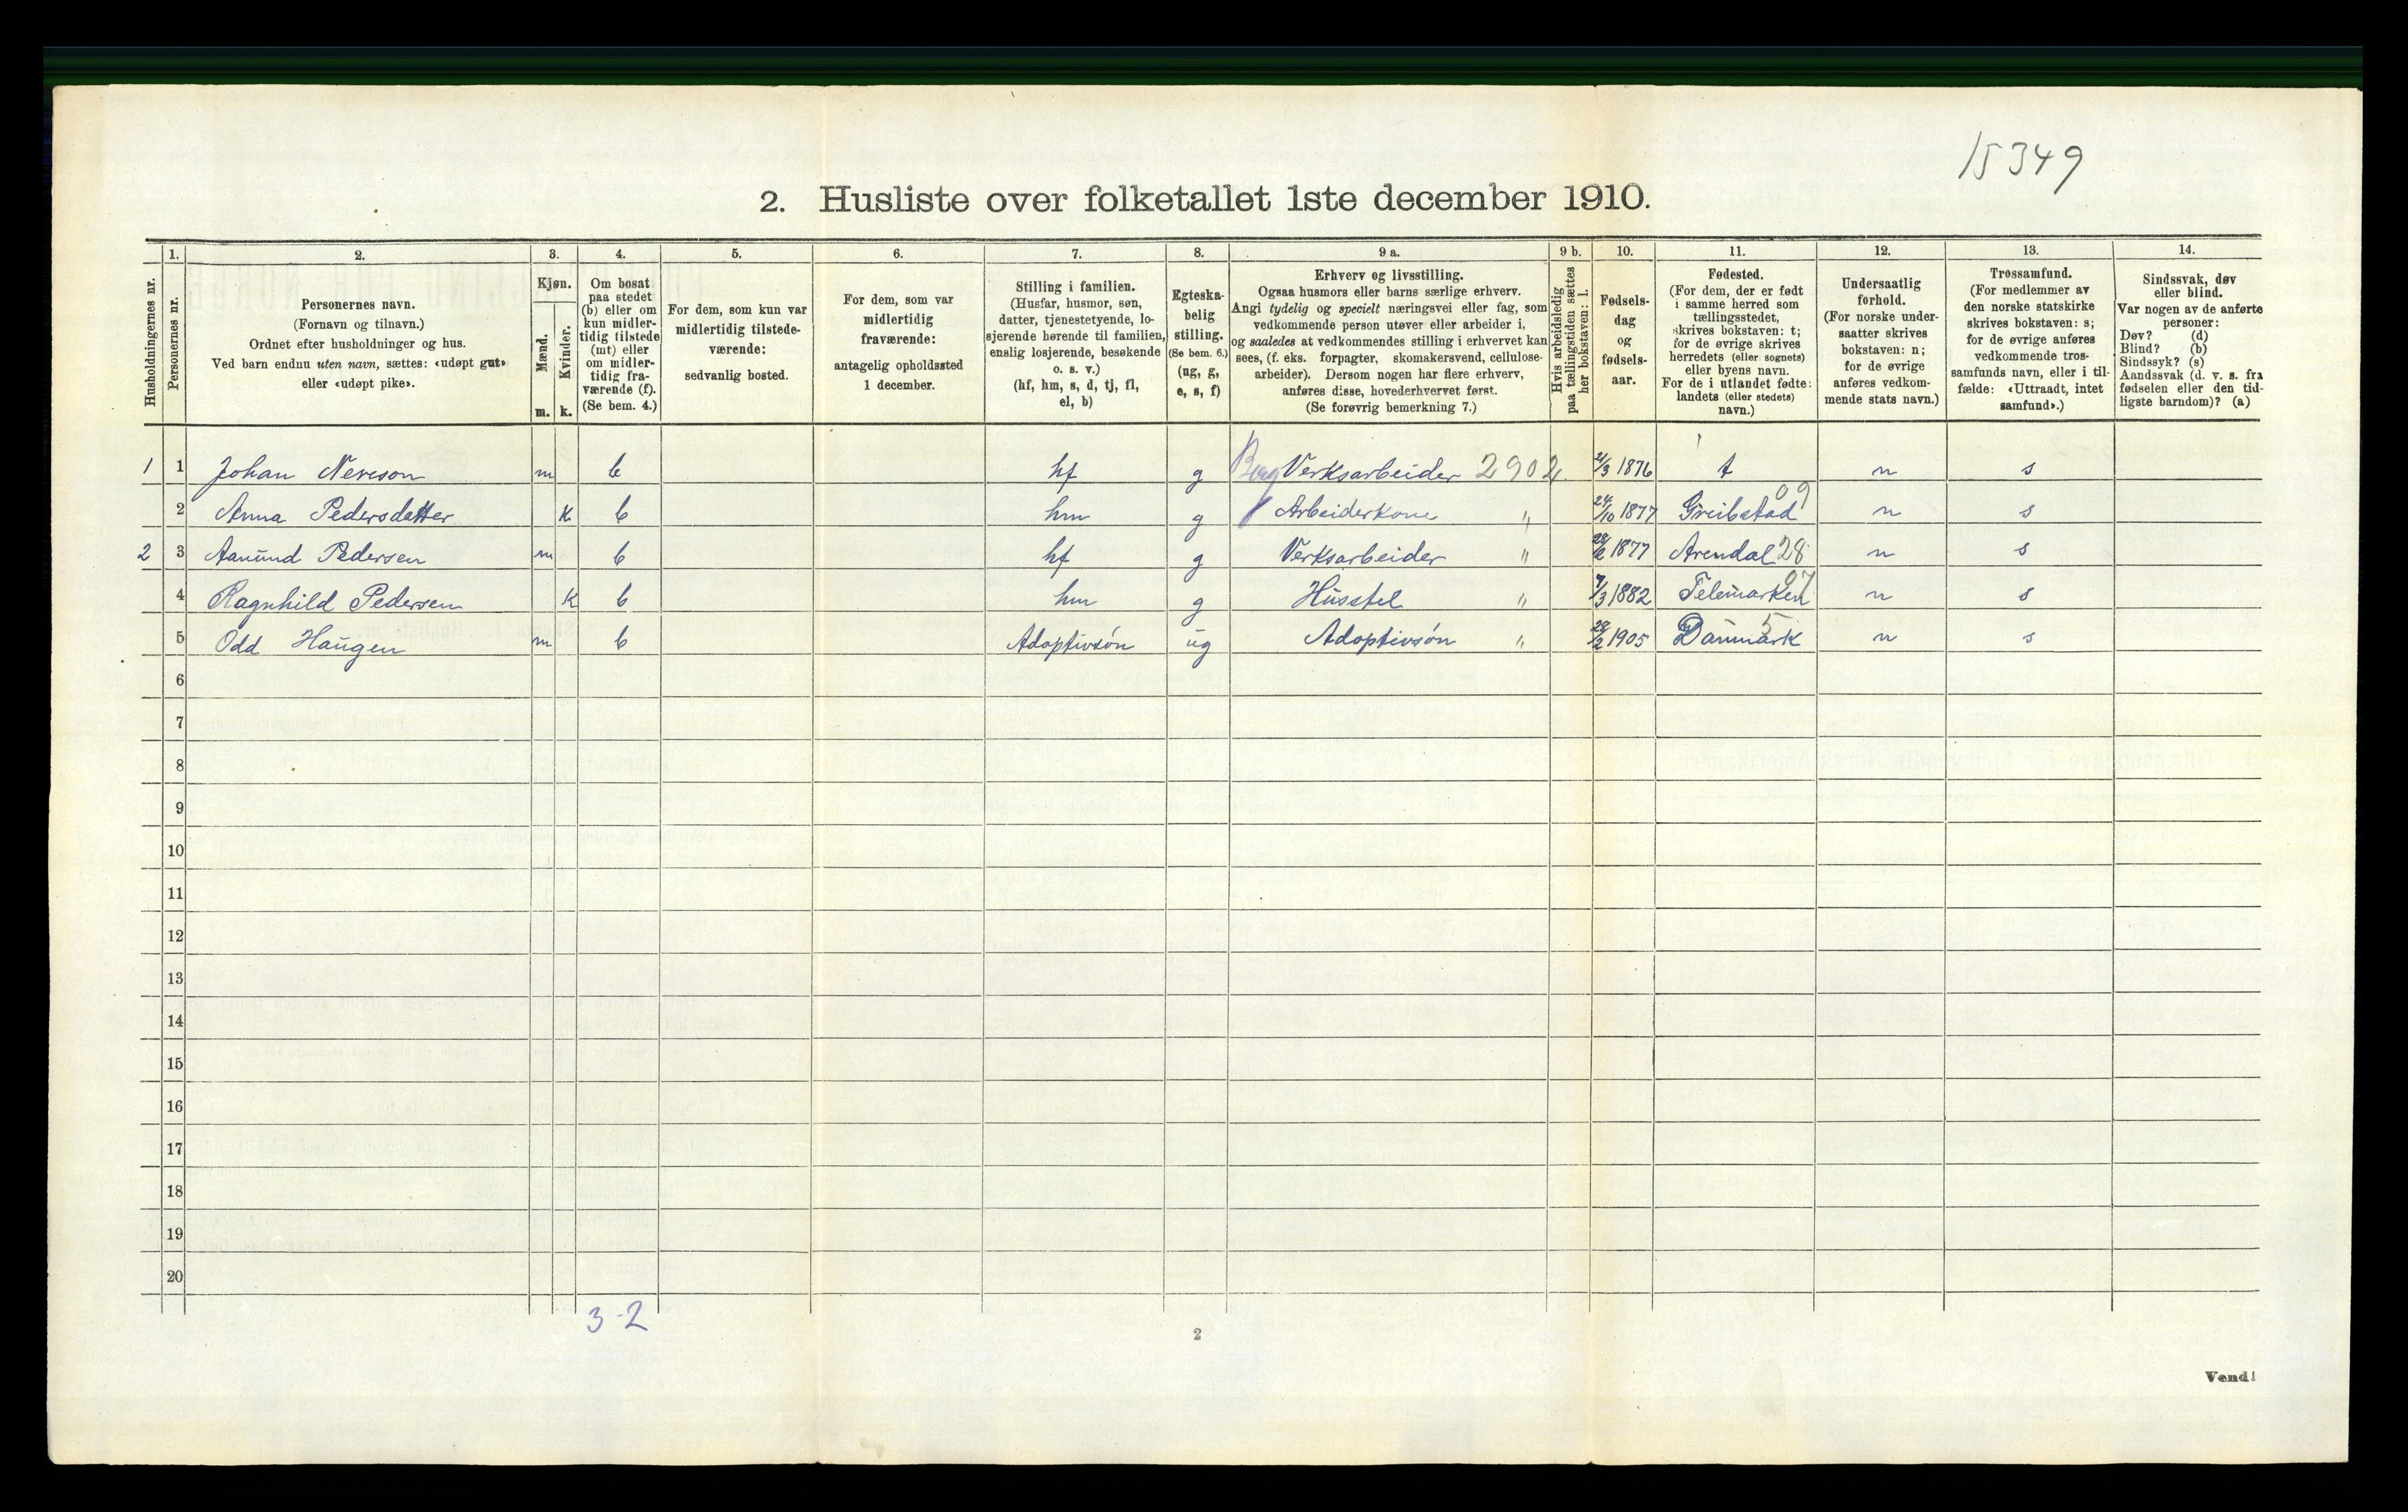 15349
2. Husliste over folketallet 1ste december 1910.
Husholdningernes nr.
1.
Personernes nr.
2.
Personernes navn.
(Fornavn og tilnavn.)
Ordnet efter husholdninger og hus.
Ved barn endnu uten navn, sættes: «udøpt gut»
eller «udøpt pike».
3.
Kjøn.
Mænd.
Kvinder.
m. k.
4.
Om bosat
paa stedet
(b) eller om
kun midler-
tidig tilstede
(mt) eller
om midler-
tidig fra-
værende (f).
(Se bem. 4.)
5.
For dem, som kun var
midlertidig tilstede-
værende:
sedvanlig bosted.
6.
For dem, som var
midlertidig
fraværende:
antagelig opholdssted
1 december.
7.
Stilling i familien.
(Husfar, husmor, søn,
datter, tjenestetyende, lo-
sjerende hørende til familien,
enslig losjerende, besøkende
o. s. v.)
(hf, hm, s, d, tj, fl,
el, b)
8.
Egteska-
belig
stilling.
(Se bem. 6.)
(ug, g,
e, s, f)
9 a.
Erhverv og livsstilling.
Ogsaa husmors eller barns særlige erhverv.
Angi tydelig og specielt næringsvei eller fag, som
vedkommende person utøver eller arbeider i,
og saaledes at vedkommendes stilling i erhvervet kan
sees, (f. eks. forpagter, skomakersvend, cellulose-
arbeider). Dersom nogen har flere erhverv,
anføres disse, hovederhvervet først.
(Se forøvrig bemerkning 7.)
9 b.
Hvis arbeidsledig
paa tællingstiden sættes
her bokstaven: l.
10.
Fødsels-
dag
og
fødsels-
aar.
11.
Fødested.
(For dem, der er født
i samme herred som
tællingsstedet,
skrives bokstaven: t;
for de øvrige skrives
herredets (eller sognets)
eller byens navn.
For de i utlandet fødte:
landets (eller stedets)
navn.)
12.
Undersaatlig
forhold.
(For norske under-
saatter skrives
bokstaven: n;
for de øvrige
anføres vedkom-
mende stats navn.)
13.
Trossamfund.
(For medlemmer av
den norske statskirke
skrives bokstaven: s;
for de øvrige anføres
vedkommende tros-
samfunds navn, eller i til-
fælde: «Uttraadt, intet
samfund».)
14.
Sindssvak, døv
eller blind.
Var nogen av de anførte
personer:
Døv? (d)
Blind? (b)
Sindssyk? (s)
Aandssvak (d. v. s. fra
fødselen eller den tid-
ligste barndom)? (a)
1 1 Johan Neveson m b hf g Berg Verksarbeider 2902 /3 1876 t n s
2 Anna Pedersdatter k b hm g Arbeiderkone " 24/10 1877 Greibstad 09 n s
2 3 Aanund Pedersen m b hf g Verksarbeider " 1877 Arendal 28 n s
4 Ragnhild Pedersen k b hm g Husstel " 7/3 1882 Telemarken 07 n s
5 Odd Haugen m b Adoptivsón ug Adoptivsón " 28/2 1905 Danmark 5 n s
6
7
8
9
10
11
12
13
14
15
16
17
18
19
20
3-2
2
Vend!